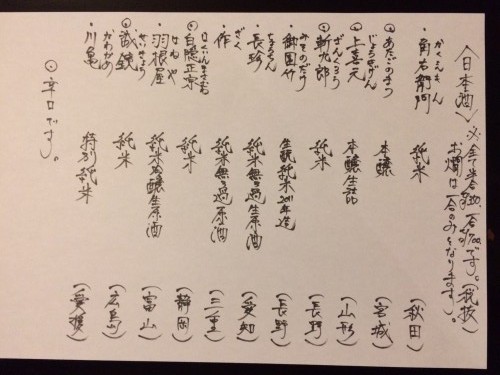 〈日本酒〉※全て半合
一合700です。(税抜)
お燗は一合のみとなります。
かくえもん
・角右衛門 純米 (秋田)
◎あたごのまつ 本醸 (宮城)
じょうきげん
◎上喜元 本醸生詰 (山形)
ざんくろう
◎斬九郎 純米 (長野)
みそのたけ
・御園竹 生酛純米2011年造 (長野)
ちょうちん
・長珍 純米無ろ過生原酒 (愛知)
ざく
・作 純米無ろ過原酒 (三重)
はくいんまさむね
◎白隠正宗 純米 (静岡)
はねや
・羽根屋 純米吟醸生原酒 (富山)
せいきょう
◎誠鏡 純米 (広島)
かわかめ
・川亀 特別純米 (愛媛)
◎辛口です。